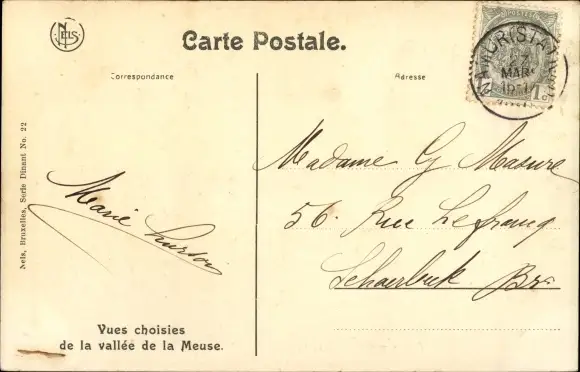 NELS
Carte Postale.
Correspondance
Adresse
POSTES
NAMUR (STATION)
MAR
1911
1c
Nels, Bruxelles, Serie Dinant No. 22
Marie
Madame G Masure
56. Rue Lefrancq
Schaerbeek Br.
Vues choisies
de la vallée de la Meuse.